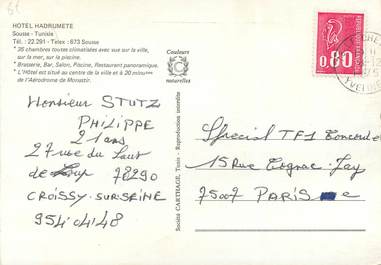 HOTEL HADRUMETE
Sousse - Tunisie
Tél. : 22.291 - Telex : 673 Sousse
* 35 chambres toutes climatisées avec vue sur la ville,
sur la mer, sur la piscine.
* Brasserie, Bar, Salon, Piscine, Restaurant panoramique.
* L'Hôtel est situé au centre de la ville et à 20 minutes
de l'Aérodrome de Monastir.
Couleurs
naturelles
Société CARTHAGE, Tunis - Reproduction interdite
0,80
Monsieur STUTZ
PHILIPPE
21 ans
27 rue du Saut
de Loup 78290
CROISSY-SUR-SEINE
954 04 48
Special TF1 Concorde
15 Rue Cognac-Jay
75007 PARIS